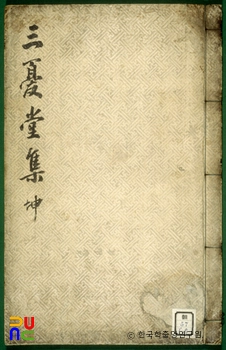 三憂堂集 坤
© 한국학중앙연구원